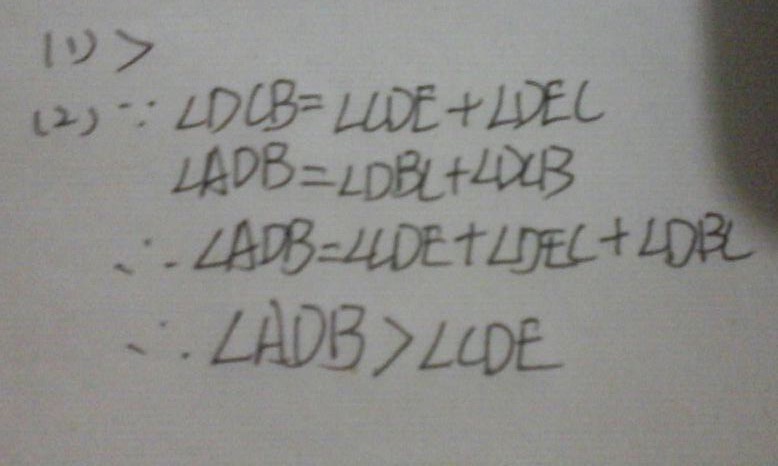 (1) >
(2) ∵ ∠DCB=∠CDE+∠DEC
∠ADB=∠DBC+∠DCB
∴ ∠ADB=∠CDE+∠DEC+∠DBC
∴ ∠ADB>∠CDE